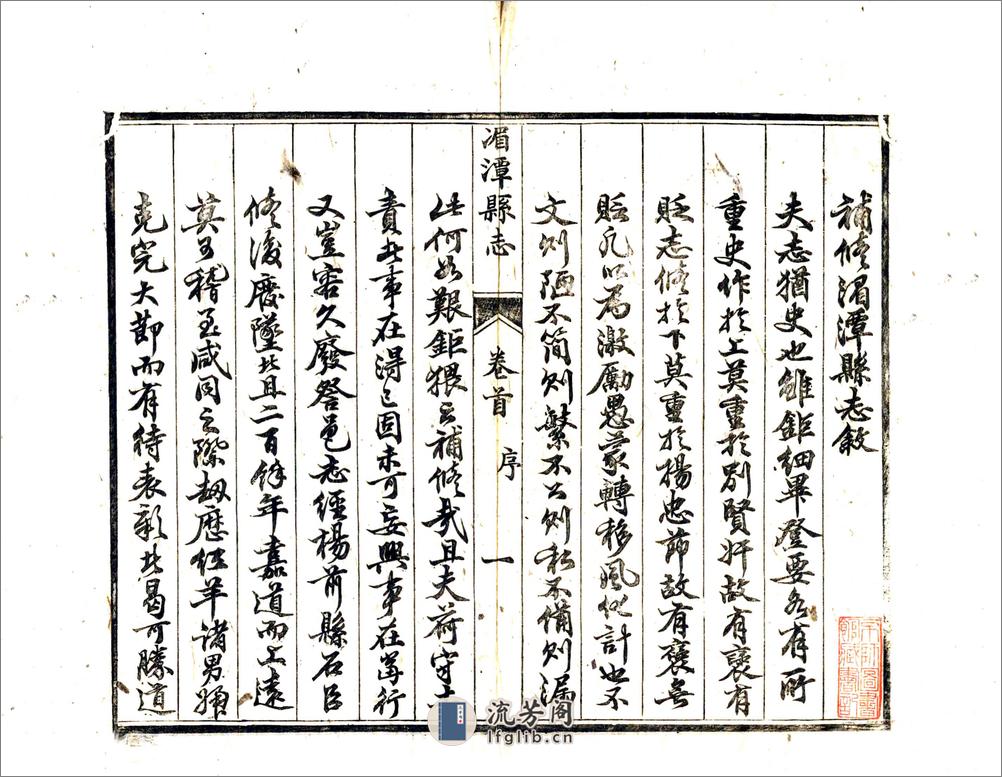 補修湄潭縣志敘
夫志猶史也雖鉅細畢登要各有所
重史作於上莫重於別賢奸故有褒有
貶志修於下莫重於揚忠節故有褒無
貶凡以為激厲愚蒙轉移風化計也不
文則陋不簡則繁不公則私不備則漏
湄潭縣志
卷首
序
一
此何如艱鉅猥云補修哉且夫荷守土
責此事在得已固未可妄興事在當行
又豈容久廢咨邑志經楊前縣石臣
修後廢墜者且二百餘年嘉道而上遠
莫可稽至咸同之際劫歷紅羊諸男婦
克完大節而有待表彰者曷可勝道
流芳阁
lfglib.cn